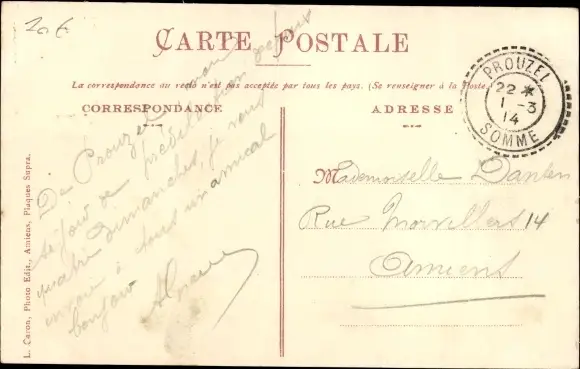 20 €
CARTE POSTALE
La correspondance au recto n'est pas acceptée par tous les pays. (Se renseigner à la Poste.)
CORRESPONDANCE
ADRESSE
PROUZEL
22 *
1 - 3
14
SOMME
De Prouzel mon
séjour de prédilection depuis
quatre dimanches, je vous
envoie à tous un amical
bonjour
Mademoiselle Danten
Rue Morvillers 14
Amiens
L. Caron, Photo Edit., Amiens, Plaques Supra.